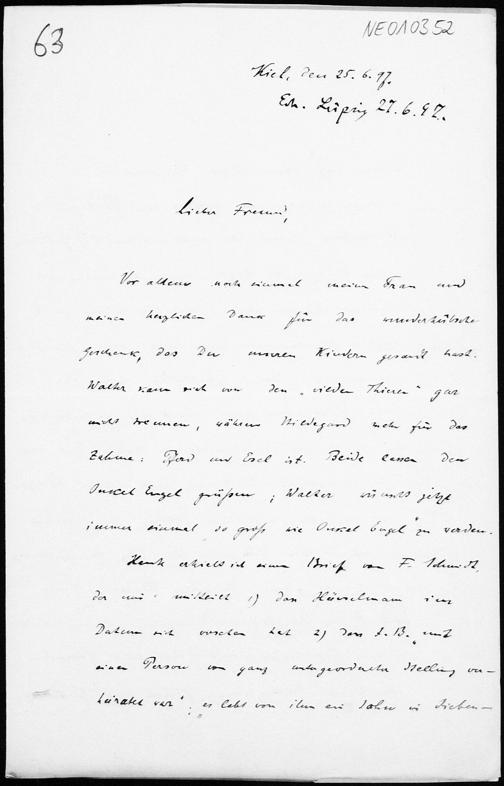 63
NE010352
Kiel, den 25. 6. 97.
Erh. Leipzig 27. 6. 97.
Lieber Freund,
Vor allem noch einmal meiner Frau und
meinen herzlichen Dank für das wunderhübsche
Geschenk, das Du unseren Kindern gesandt hast.
Walter kann sich von den „wilden Thieren“ gar
nicht trennen, während Hildegard mehr für das
Zahme: Pferd und Esel ist. Beide lassen den
Onkel Engel grüßen; Walter wünscht jetzt
immer einmal „so groß wie Onkel Engel“ zu werden.
Heute erhielt ich einen Brief von F. Schmidt,
der mir mittheilt 1) dass Hänselmann im
Datum sich versehen hat 2) dass J. B. „mit
einer Person von ganz untergeordneter Stellung ver-
heiratet war“; „es lebt von ihm ein Sohn in Sieben-